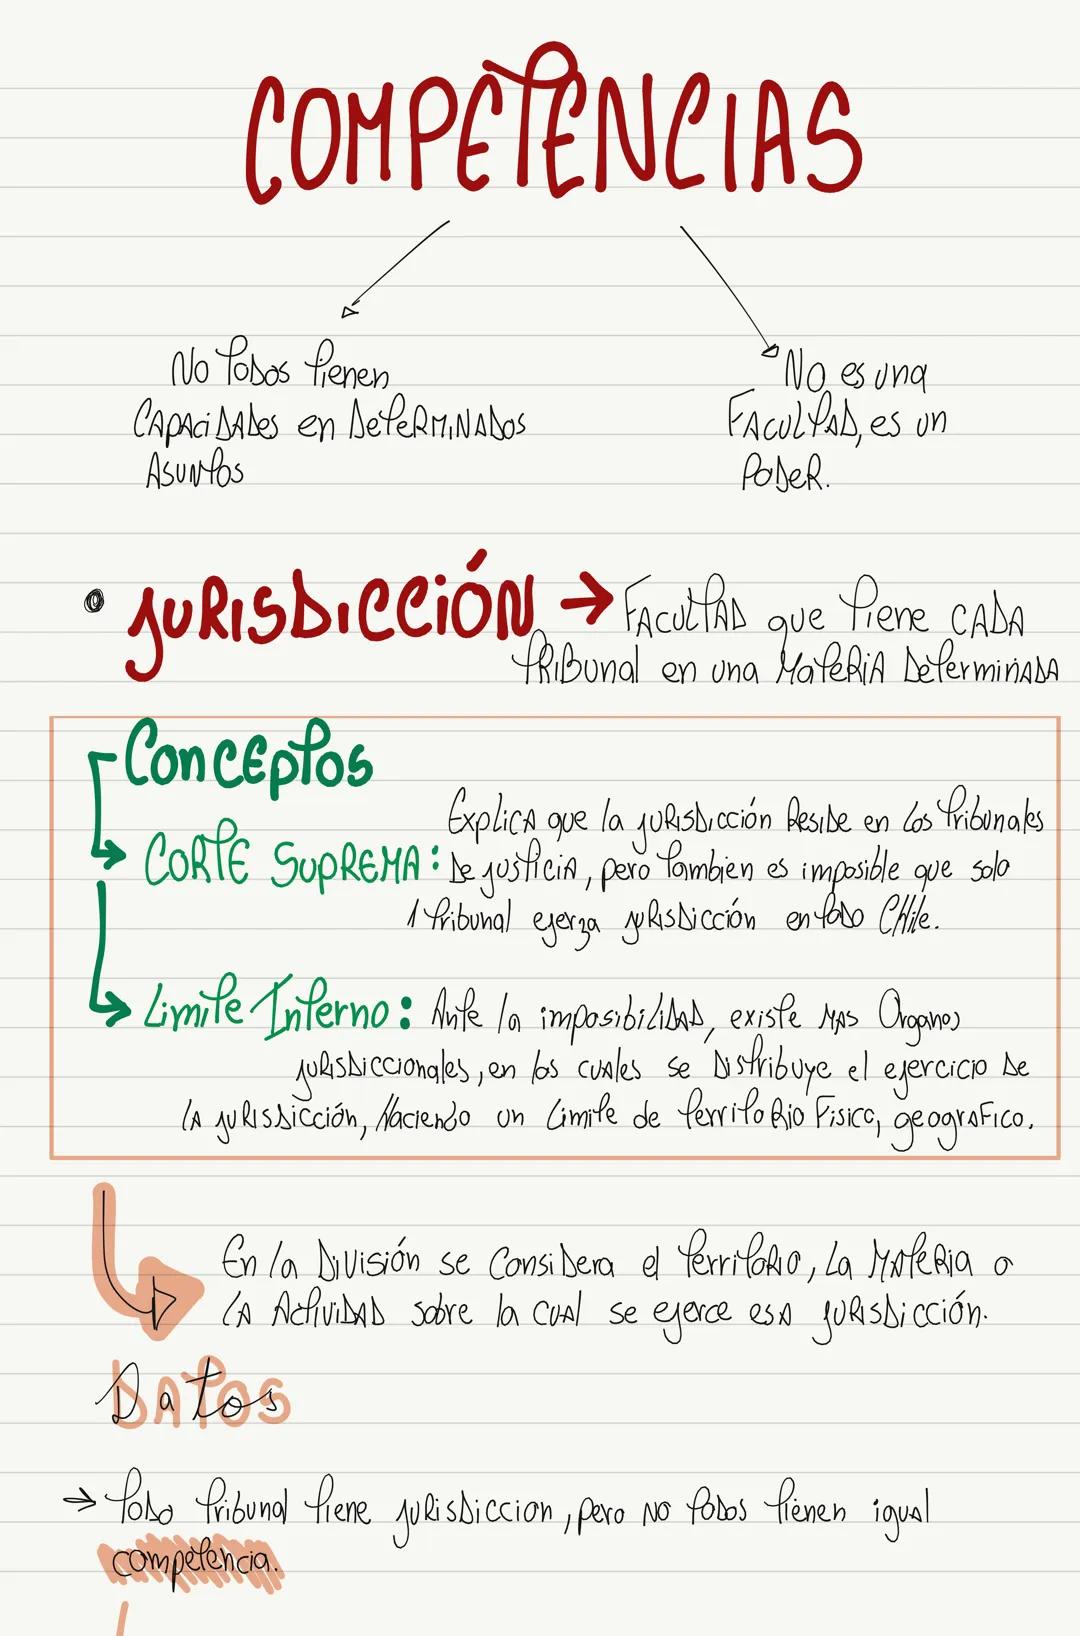 COMPETENCIAS
No todos tienen
CAPACiDADes en DeTeRMiNADos
ASUNTos
No es una
FACULTAD, es un
PODeR.
• JURISDICCIÓN → FACULTAD que tiene CADA
tRiBunal en una MateRiA DeterminADA
Conceptos
Explica que la jurisdicción Reside en los tribunales
CORTE SUPREMA: De justicia, pero tambien es imposible que solo
1 tribunal ejerza jurisdicción en todo Chile.
Limite Interno: Ante la imposibilidad, existe MAS Organos
jurisdiccionales, en los cuales se Distribuye el ejercicio De
LA jurisdicción, Haciendo un Limite de territorio Fisico, geografico.
En la División se Considera el territorio, La Materia o
LA Actividad sobre la cual se ejerce esa jurisdicción.
Datos
→ todo tribunal tiene jurisdiccion, pero NO todos tienen igual
competencia.